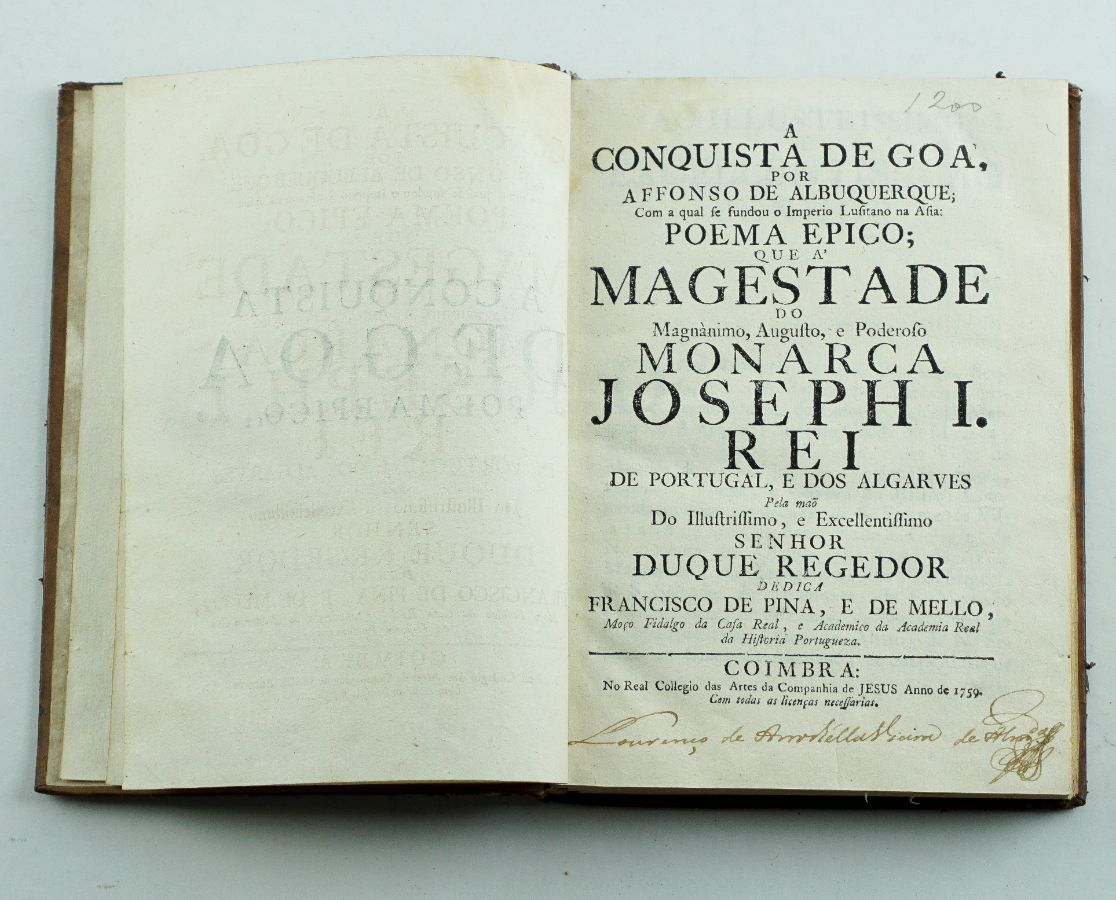 1200
A
CONQUISTA DE GOA,
POR
AFFONSO DE ALBUQUERQUE;
Com a qual ſe fundou o Imperio Luſitano na Aſia:
POEMA EPICO;
QUE A'
MAGESTADE
DO
Magnànimo, Auguſto, e Poderoſo
MONARCA
JOSEPH I.
REI
DE PORTUGAL, E DOS ALGARVES
Pela maõ
Do Illuſtriſſimo, e Excellentiſſimo
SENHOR
DUQUE REGEDOR
DEDICA
FRANCISCO DE PINA, E DE MELLO,
Moço Fidalgo da Caſa Real, e Academico da Academia Real
da Hiſtoria Portugueza.
COIMBRA:
No Real Collegio das Artes da Companhia de JESUS Anno de 1759.
Com todas as licenças neceſſarias.
Lourenço de